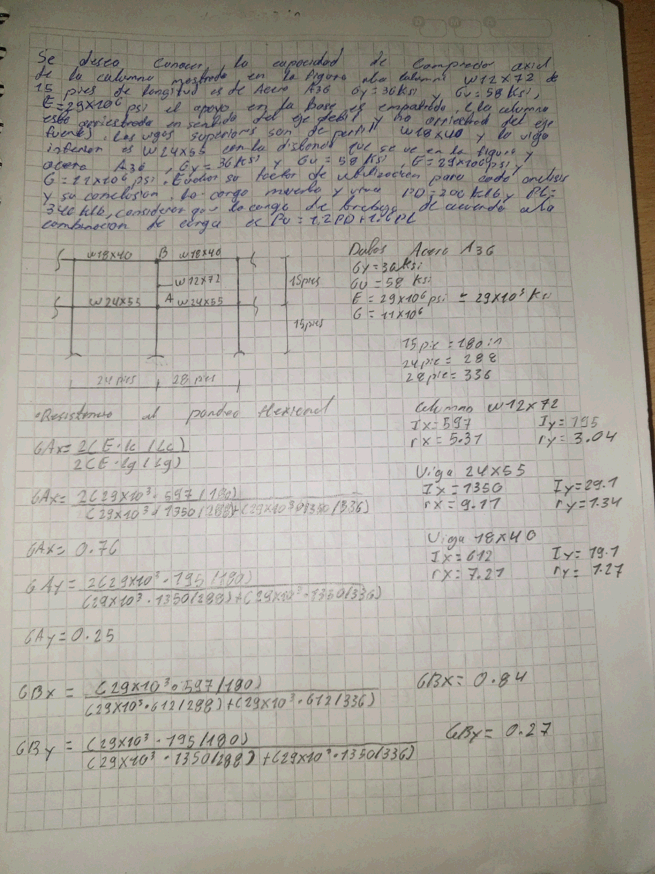 Se desea conocer la capacidad de compresion axial
de la columna mostrada en la figura la columna W12x72 de
15 pies de longitud es de Acero A36 Gy=36Ksi y Gu=58 Ksi,
E=29x10⁶ psi el apoyo en la base es empotrado. la columna
esta arriostrada en sentido del eje debil y no arriostrada del eje
fuerte. Las vigas superiores son de perfil W18x40 y la viga
inferior es W24x55 con la distancia que se ve en la figura y
acero A36, Gy=36Ksi y Gu=58 Ksi, E=29x10⁶psi y
G=11x10⁶ psi. su factor de utilizacion para cada analisis
y su conclusion. la carga muerta y viva PD=200 Klb y PL=
340 Klb, considerar que la carga de de acuerdo a la
combinacion de carga es Pu=1,2PD+1,6PL
W18x40 B W18x40
W12x72
W24x55 A W24x55
15pies
15pies
24 pies 28 pies
Datos Acero A36
Gy=36Ksi
Gu=58 Ksi
E=29x10⁶psi = 29x10³ Ksi
G=11x10⁶
15pie=180in
24pie=288
28pie=336
•Resistencia al pandeo flexional
Columna W12x72
Ix=597 Iy=195
rx=5.31 ry=3.04
GAx= 2(E·Ic/Lc)
2(E·Ig/Lg)
Viga 24x55
Ix=1350 Iy=29.1
rx=9.11 ry=1.34
GAx= 2(29x10³·597/180)
(29x10³·1350/288)+(29x10³·1350/336)
GAx=0.76
Viga 18x40
Ix=612 Iy=19.1
rx=7.21 ry=1.27
GAy= 2(29x10³·195/180)
(29x10³·1350/288)+(29x10³·1350/336)
GAy=0.25
GBx= (29x10³·597/180)
(29x10³·612/288)+(29x10³·612/336)
GBx=0.84
GBy= (29x10³·195/180)
(29x10³·1350/288)+(29x10³·1350/336)
GBy=0.27